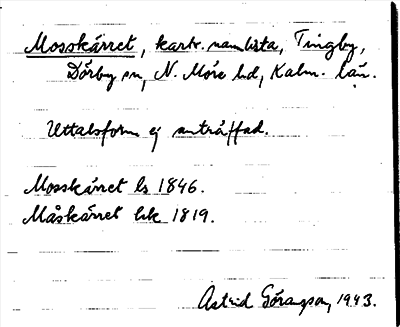 Mosskärret, kartr. namnlista, Tingby,
Dörby sn, N. Möre hd, Kalm. län.
Uttalsform ej anträffad.
Mosskärret ls 1846.
Måskärret hk 1819.
Astrid Göransson, 1943.